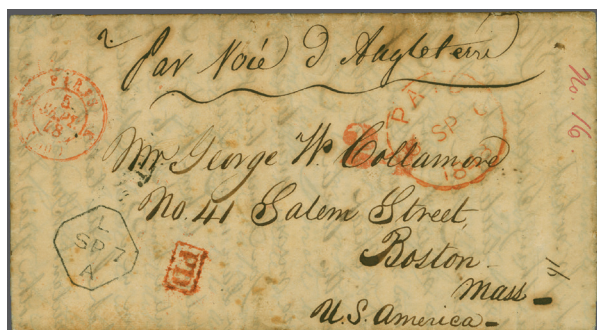 Par Voie d'Angleterre
No. 16.
PARIS
5
SEPT
PAID
SP
Mr. George W. Collamore
No. 41 Salem Street,
Boston
Mass
U.S. America
L
SP 7
A
PD